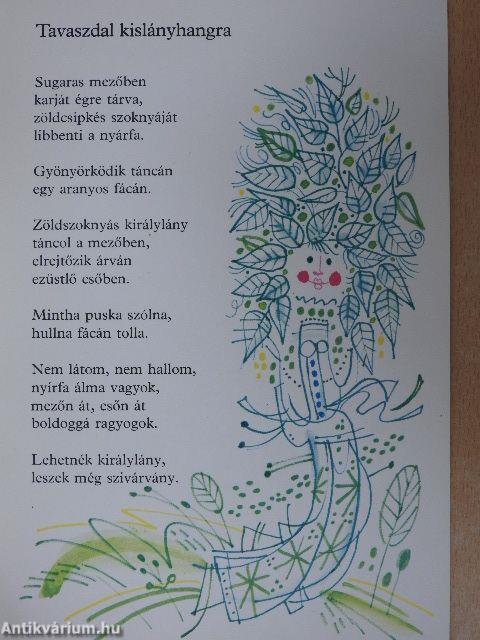 Tavaszdal kislányhangra
Sugaras mezőben
karját égre tárva,
zöldcsipkés szoknyáját
libbenti a nyárfa.
Gyönyörködik táncán
egy aranyos fácán.
Zöldszoknyás királylány
táncol a mezőben,
elrejtőzik árván
ezüstlő esőben.
Mintha puska szólna,
hullna fácán tolla.
Nem látom, nem hallom,
nyírfa álma vagyok,
mezőn át, esőn át
boldoggá ragyogok.
Lehetnék királylány,
leszek még szivárvány.
Antikvárium.hu